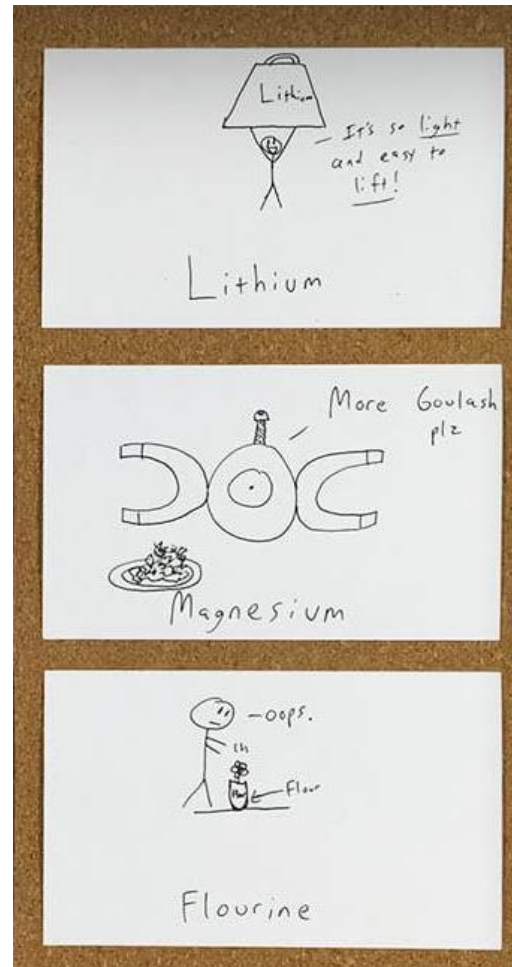 Lithium
It's so light
and easy to
lift!
Lithium
More Goulash
plz
Magnesium
-oops.
Flour
Flourine